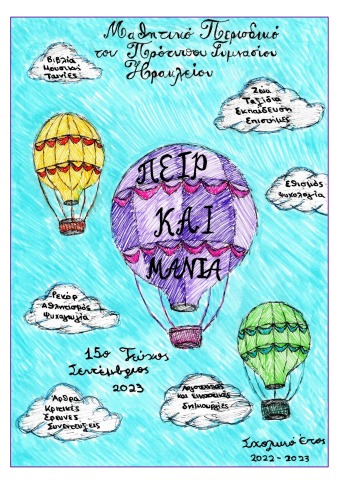 Μαθητικό Περιοδικό
του Πρότυπου Γυμνασίου
Ηρακλείου
Βιβλία
Μουσική
Ταινίες
Ζώα
Ταξίδια
Εκπαίδευση
Επιστήμες
Εθισμός
Ψυχολογία
ΠΕΙΡ
ΚΑΙ
ΜΑΝΙΑ
Ρεκόρ
Αθλητισμός
Ψυχαγωγία
15ο Τεύχος
Σεπτέμβριος
2023
Άρθρα
Κριτικές
Έρευνες
Συνεντεύξεις
και εικαστικές
δημιουργίες
Σχολικό Έτος
2022 - 2023